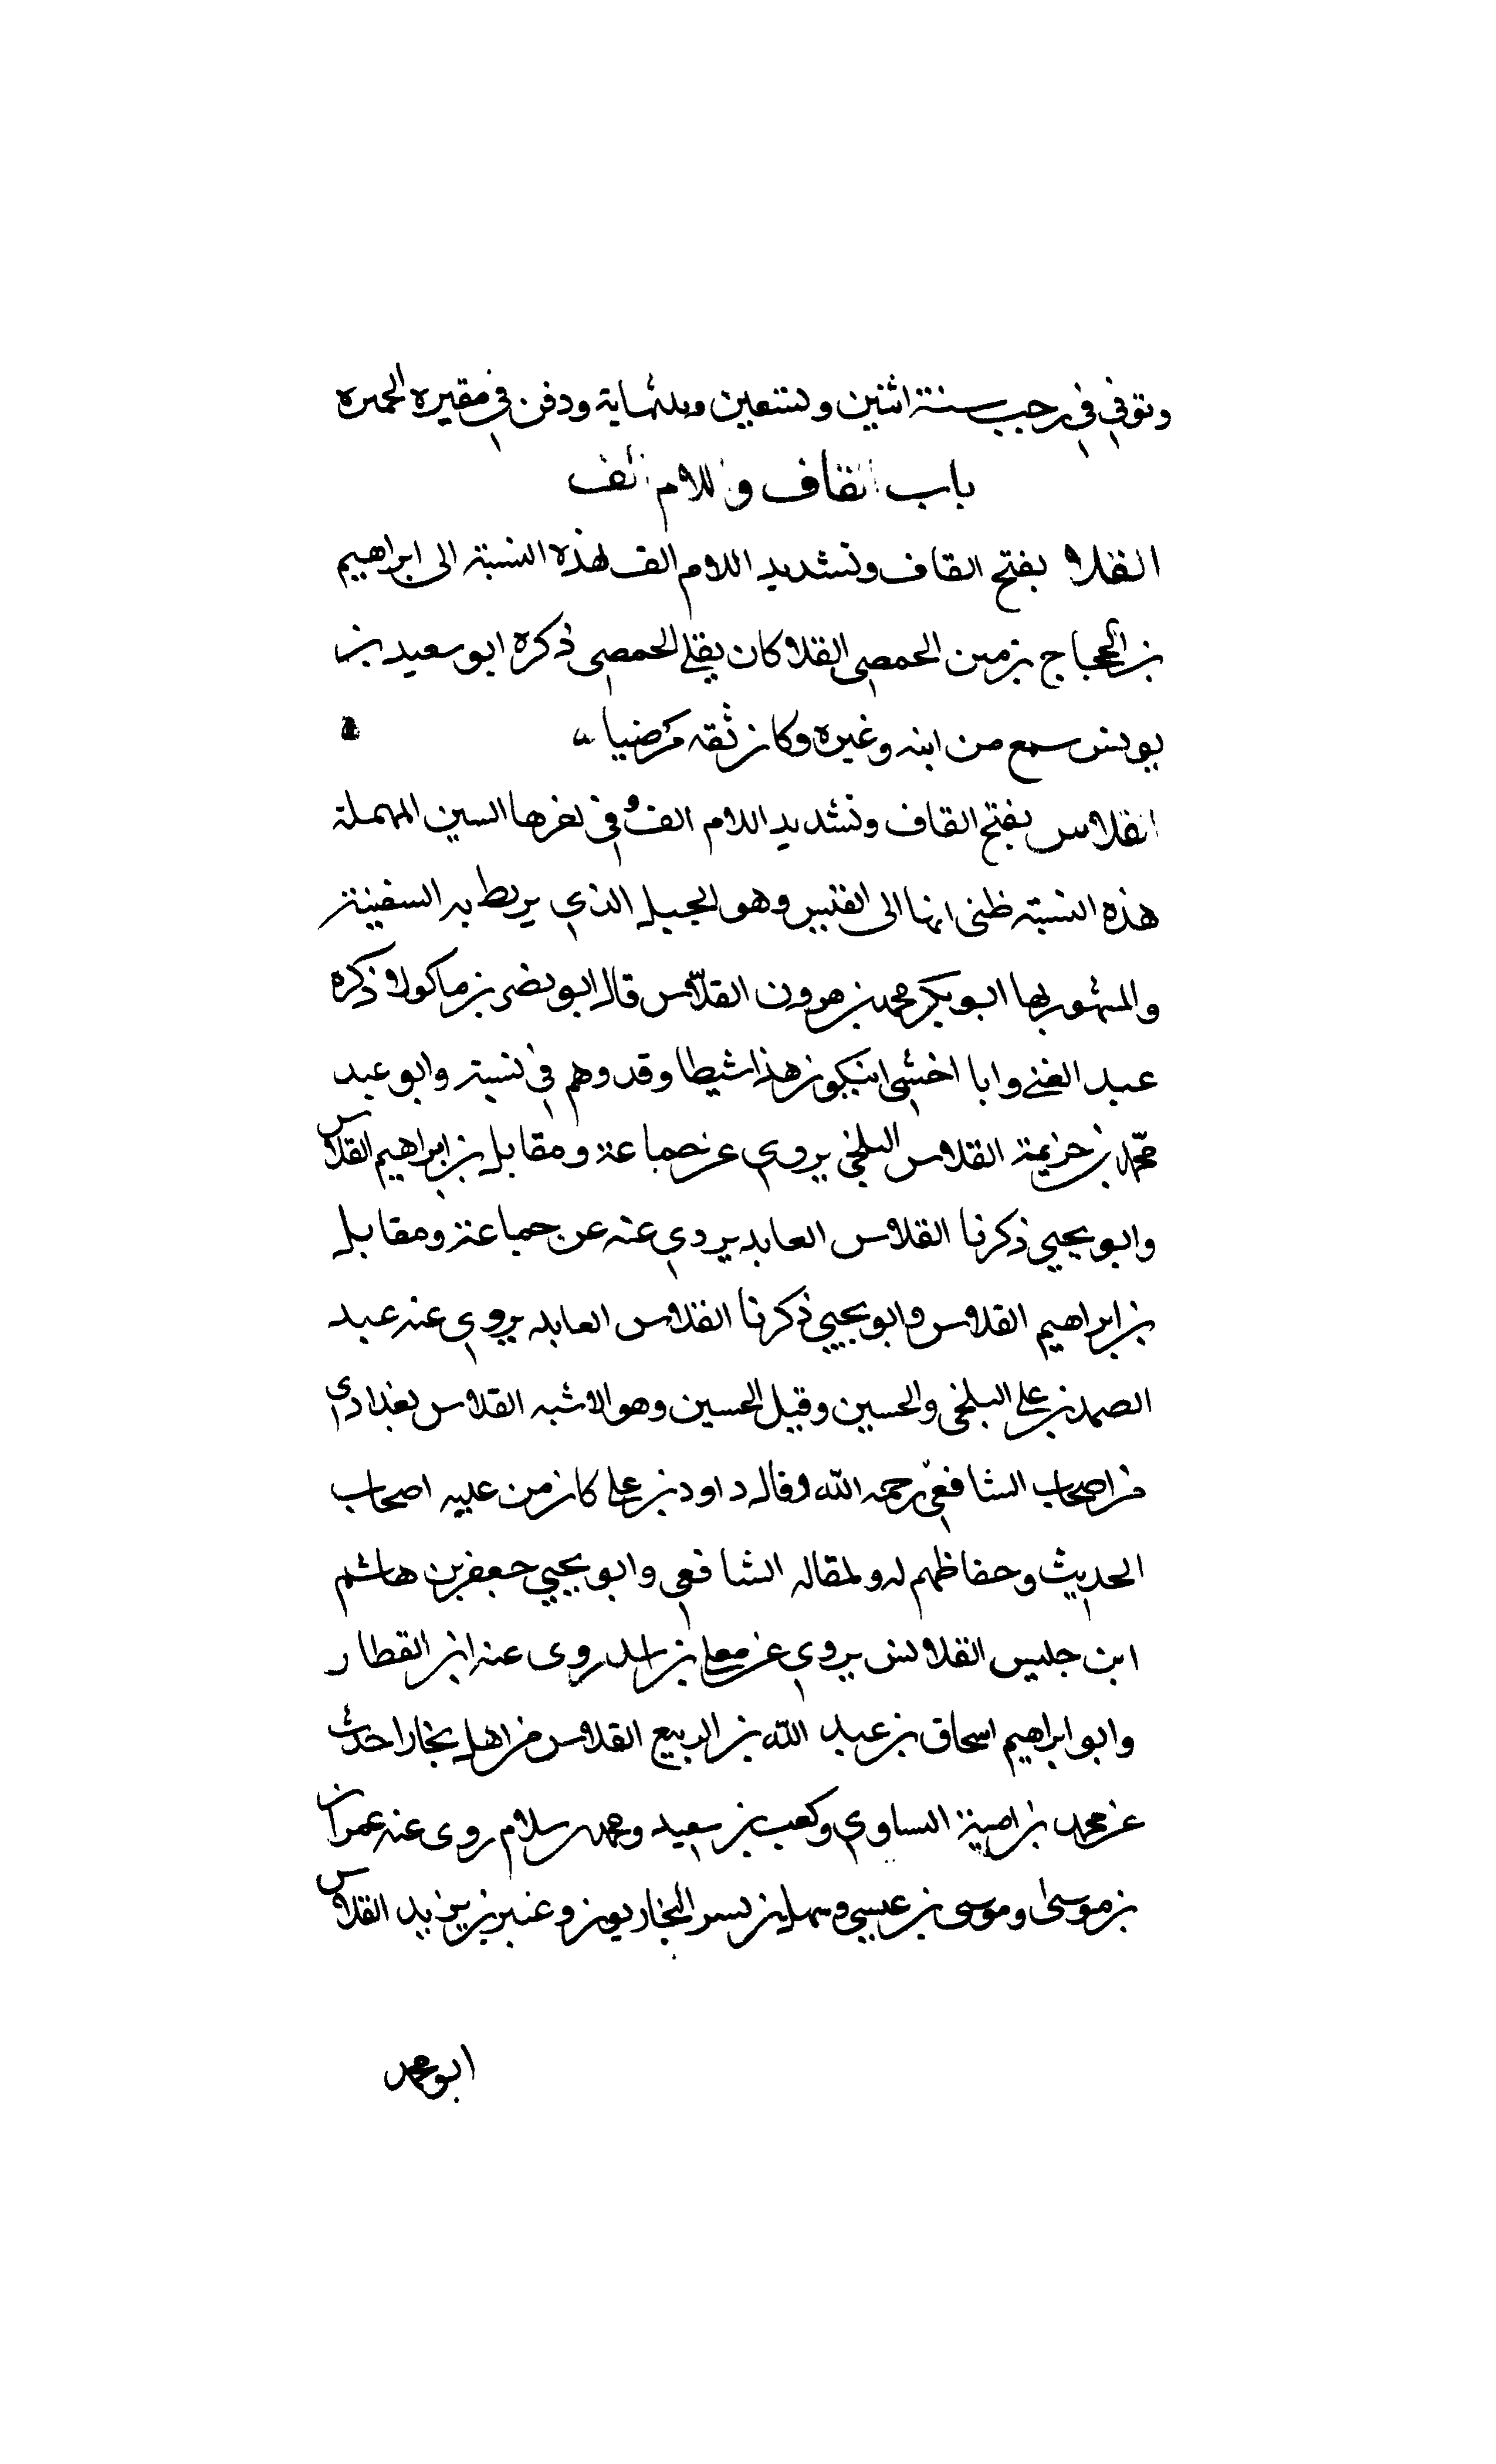 وتوفي في رجب سنة اثنين وتسعين وثلثماية ودفن في مقبره الحمره
باب القاف واللام الف
القلا بفتح القاف وتشديد اللام الف لهذه النسبة الى ابراهيم
بن الحجاج بن من الحمصي القلا كان يقلي الحمصي ذكره ابو سعيد بن
يونس سمع من ابنه وغيره وكان ثقه مرضيا
القلاس بفتح القاف وتشديد اللام الف وفي اخرها السين المهملة
هذه النسبة ظني انها الى القلس وهو الحبل الذي يربط به السفينة
والمشهور بها ابو بكر محمد بن هرون القلاس قال ابو نصر بن ماكولا ذكره
عبد الغني وانا اخشى ان يكون هذا شيطا وقد وهم في نسبته وابو عبد
محمد بن خزيمة القلاس البلخي يروي عن جماعة ومقابل بن ابراهيم القلاس
وابو يحيي ذكرنا القلاس العابد يروي عنه عن جماعة ومقابل
بن ابراهيم القلاس وابو يحيي ذكرنا القلاس العابد يروي عنه عبد
الصمد بن علي البلخي والحسين وقيل الحسين وهو الاشبه القلاس بغدادي
من اصحاب الشافعي رحمه الله وقال داود بن علي كان من عليه اصحاب
الحديث وحفاظهم له ولمقاله الشافعي وابو يحيي جعفر بن هاشم
ابن جليس القلاس يروي عن معلى بن اسد روى عنه ابن القطار
وابو ابراهيم اسحاق بن عبد الله بن الربيع القلاس من اهل بخارا حدث
عن محمد بن امية الساوي وكعب بن سعيد ومحمد بن سلام روى عنه عمران
بن موسى وموسى بن عيسي وسهل بن بسر البخاريون وعنبر بن يزيد القلاس
ابو محمد